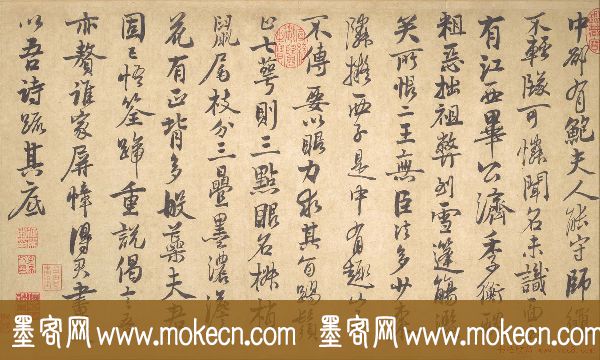 中郎有鮑夫人能守師繩
不輕墜可憐聞名未識面
有江西畢公濟季衡醜
粗惡拙祖弊到雪蓬篩濫
矣所恨二王無臣法多少東
隣擬西子是中有趣豈
不傳要以眼力求其旨踢鬚
止七萼則三點眼名椒梢
鼠尾枝分三疊墨濃淡
花有正背多般蕊夫君
固已悟筌蹄重說偈言
亦贅誰家屏幛得君畫
以吾詩疏其底
墨客网 www.mokecn.com 墨客网 www.mokecn.com